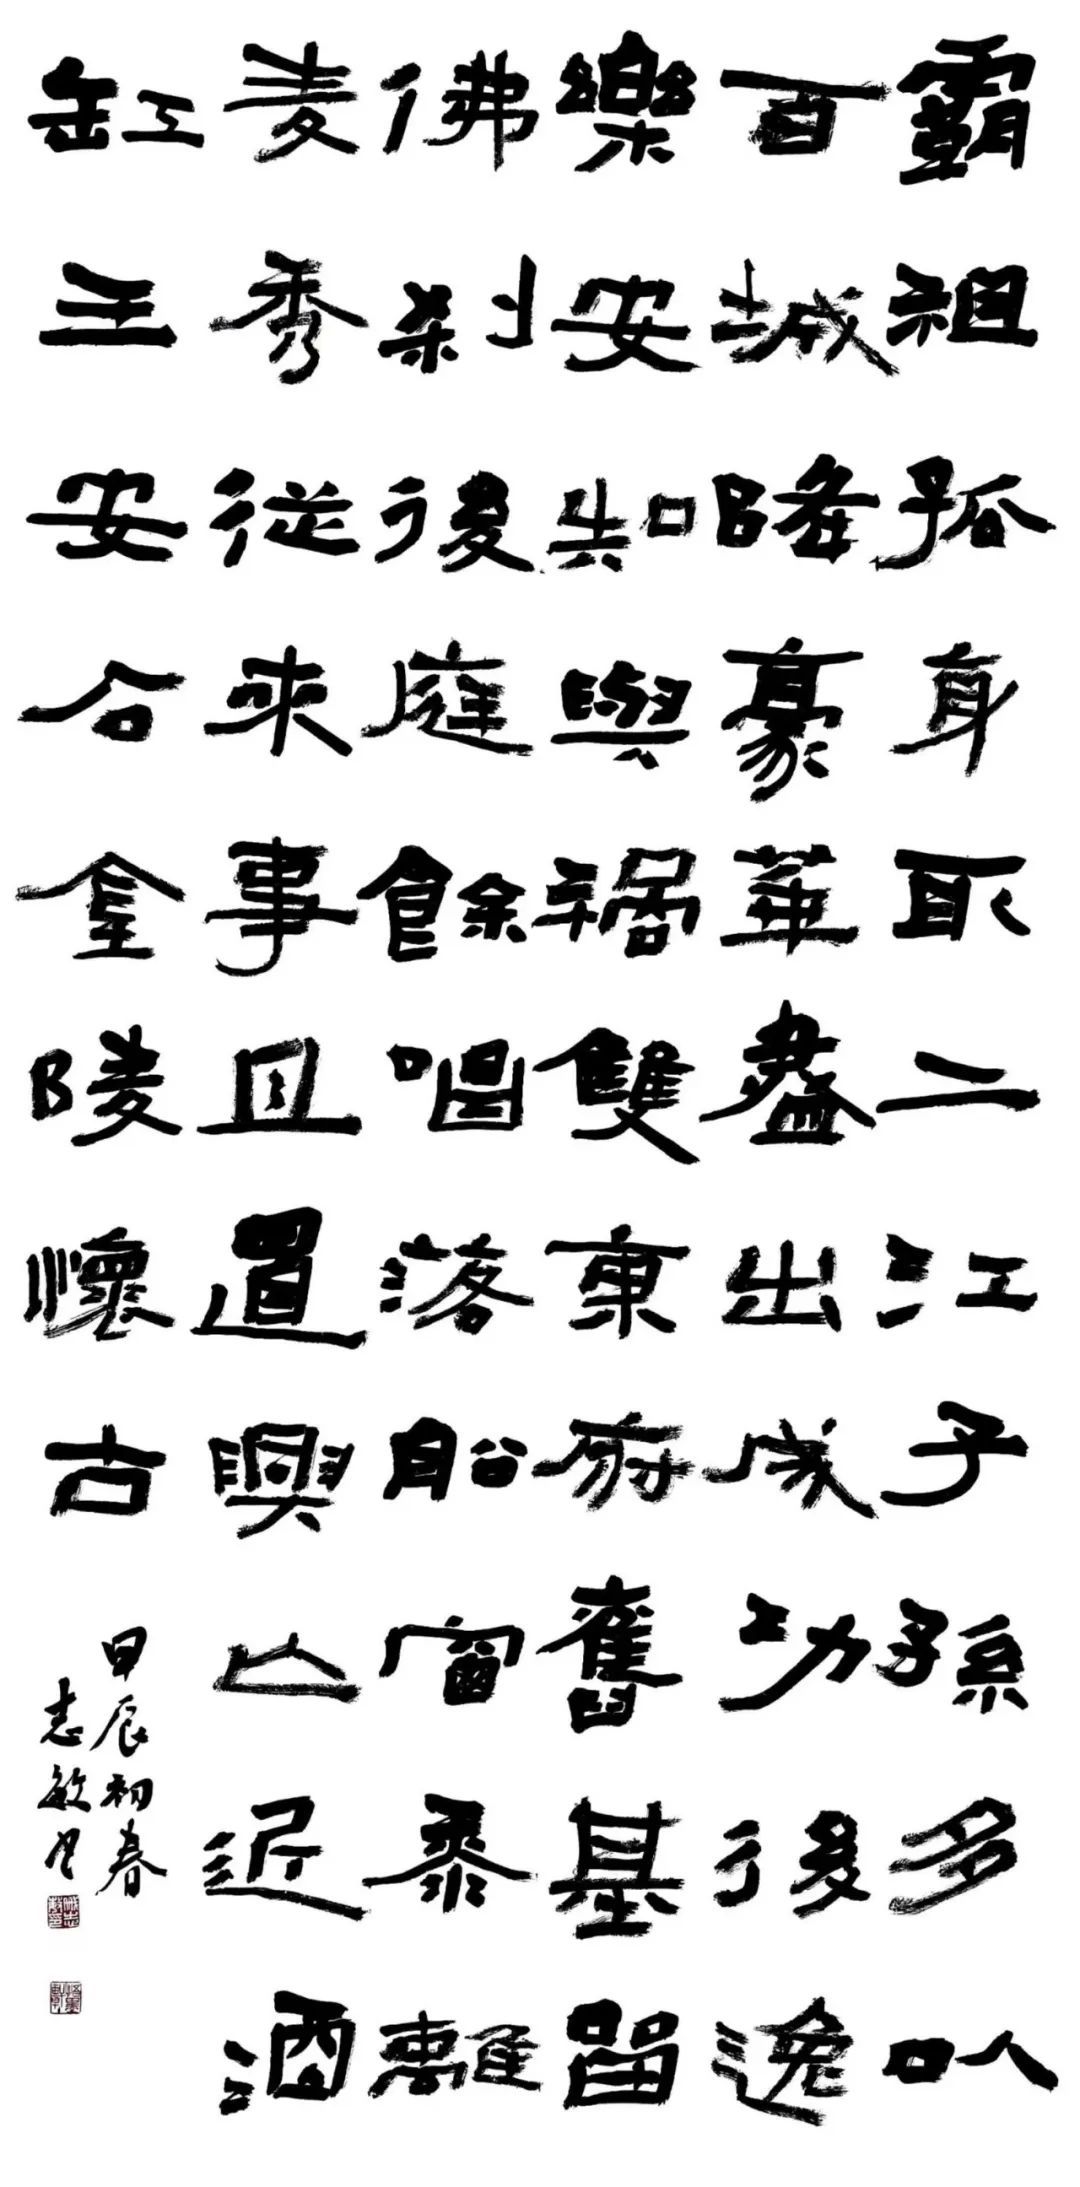 霸祖孤身取二江子孫多以
百城降豪華盡出成功後逸
樂安知與禍雙東府舊基留
佛刹後庭餘唱落船窗黍離
麦秀從來事且置興亡近酒
缸王安石金陵懷古
甲辰初春
志敏书